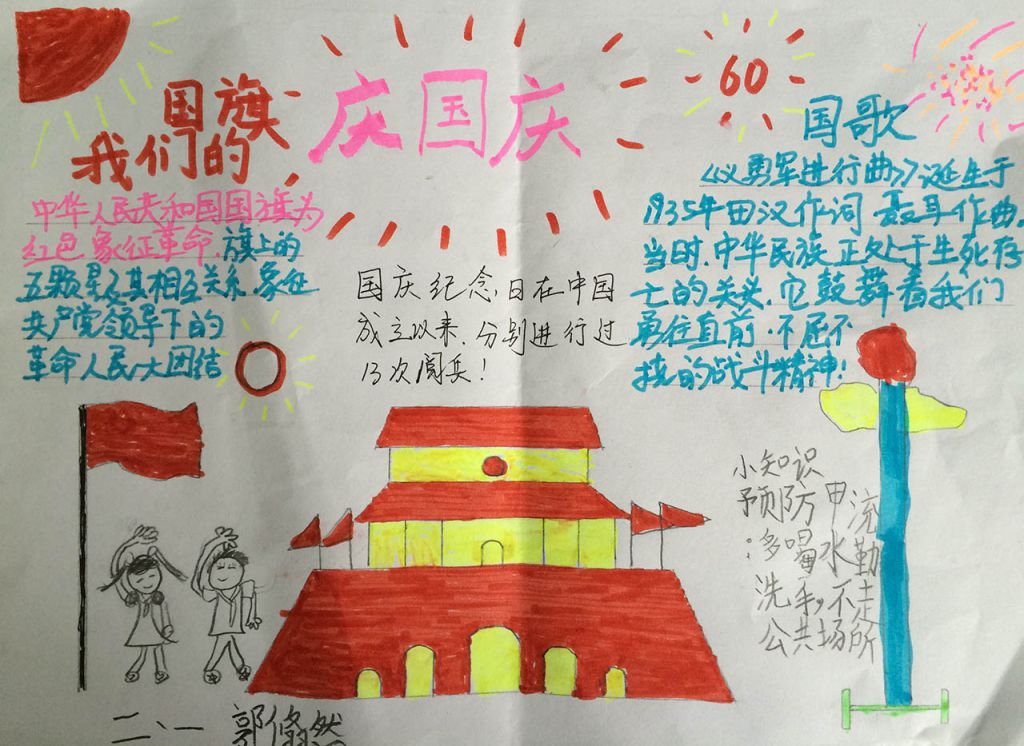 庆国庆
60
国旗
我们的
中华人民共和国国旗为
红色象征革命.旗上的
五颗星及其相互关系.象征
共产党领导下的
革命人民大团结
国庆纪念日在中国
成立以来.分别进行过
13次阅兵!
国歌
《义勇军进行曲》诞生于
1935年田汉作词 聂耳作曲.
当时.中华民族正处于生死存
亡的关头.它鼓舞着我们
勇往直前.不屈不
挠的战斗精神!
小知识
预防甲流
:多喝水勤
洗手,不走
公共场所
二、一 郭翛然